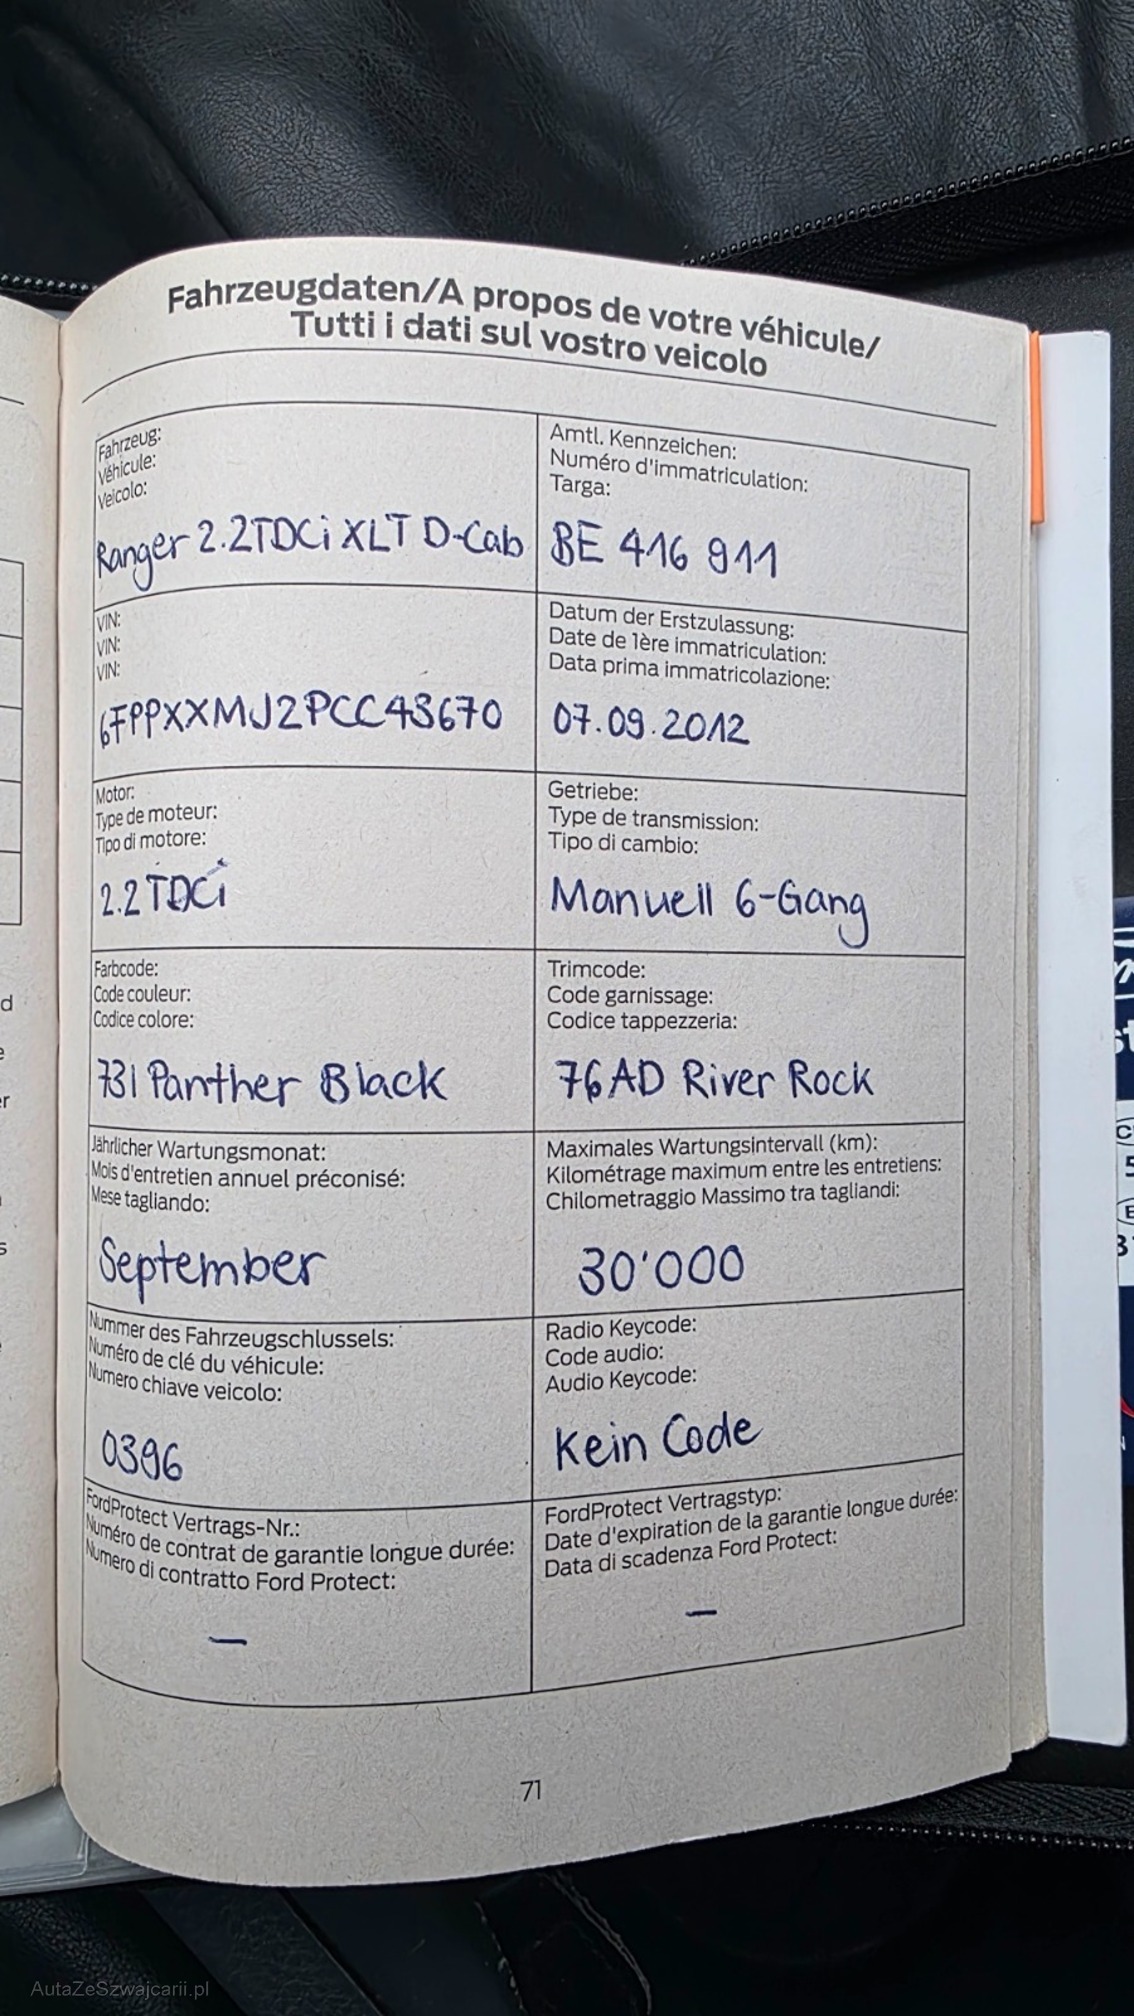 Fahrzeugdaten/A propos de votre véhicule/
Tutti i dati sul vostro veicolo
Fahrzeug:
Véhicule:
Veicolo:
Ranger 2.2TDCi XLT D-Cab
Amtl. Kennzeichen:
Numéro d'immatriculation:
Targa:
BE 416 911
VIN:
VIN:
VIN:
6FPPXXMJ2PCC43670
Datum der Erstzulassung:
Date de 1ère immatriculation:
Data prima immatricolazione:
07.09.2012
Motor:
Type de moteur:
Tipo di motore:
2.2 TDCi
Getriebe:
Type de transmission:
Tipo di cambio:
Manuell 6-Gang
Farbcode:
Code couleur:
Codice colore:
731 Panther Black
Trimcode:
Code garnissage:
Codice tappezzeria:
76AD River Rock
Jährlicher Wartungsmonat:
Mois d'entretien annuel préconisé:
Mese tagliando:
September
Maximales Wartungsintervall (km):
Kilométrage maximum entre les entretiens:
Chilometraggio Massimo tra tagliandi:
30'000
Nummer des Fahrzeugschlussels:
Numéro de clé du véhicule:
Numero chiave veicolo:
0396
Radio Keycode:
Code audio:
Audio Keycode:
Kein Code
FordProtect Vertrags-Nr.:
Numéro de contrat de garantie longue durée:
Numero di contratto Ford Protect:
—
FordProtect Vertragstyp:
Date d'expiration de la garantie longue durée:
Data di scadenza Ford Protect:
—
71
AutaZeSzwajcarii.pl